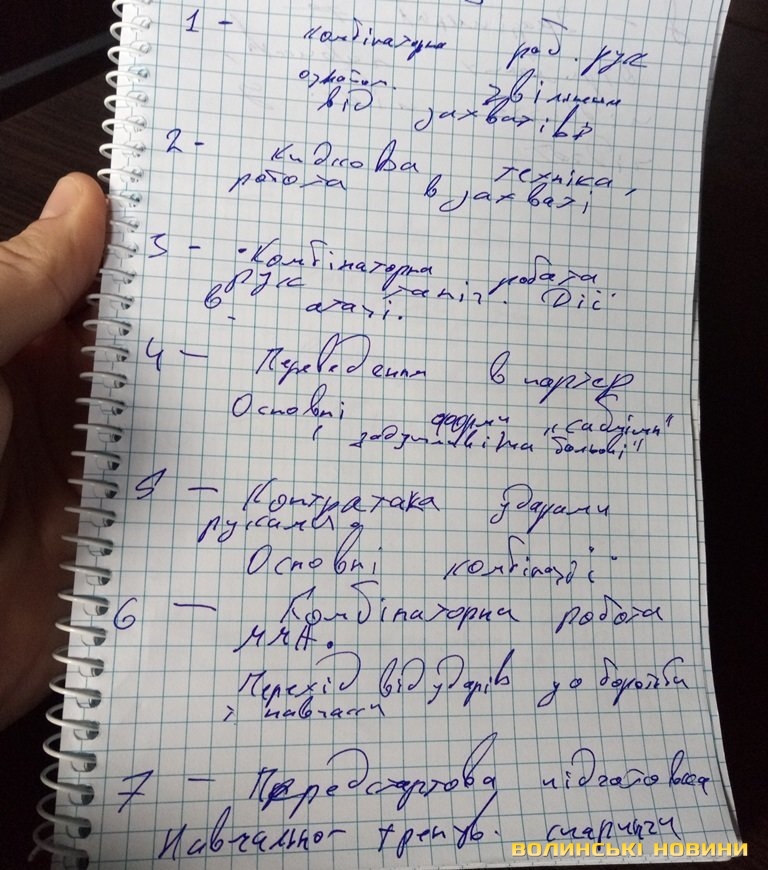 1 - комбінаторна роб. рук
ознайом. звільнення
від захватів
2 - Кидкова техніка,
робота в захваті
3 - Комбінаторна робота
рук та ніг. Дії
в атаці.
4 - Переведення в партер
Основні форми "сабмішн"
( задушливі та больові"
5 - Контратака ударами
руками
Основні комбінації
6 - Комбінаторна робота
ММА.
Перехід від ударів до боротьби
і навпаки
7 - Передстартова підготовка
Навчально- тренув. спаринги
ВОЛИНСЬКІ НОВИНИ